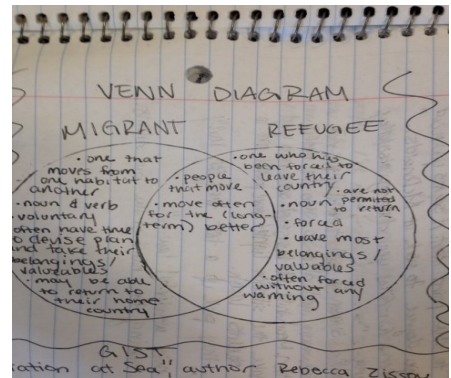 VENN DIAGRAM
MIGRANT
REFUGEE
• one that
moves from
one habitat to
another
• noun & verb
voluntary
often have time
to devise plan
and take their
belongings/
valuables
• may be able
to return to
their home
country
• people
that move
• move often
for the (long-
term) better
• one who has
been forced to
leave their
country
• noun
• forced
• leave most
belongings/
valuables
• often forced
without any
warning
• are not
permitted
to return
GIST
at Sea", author Rebecca Zissou